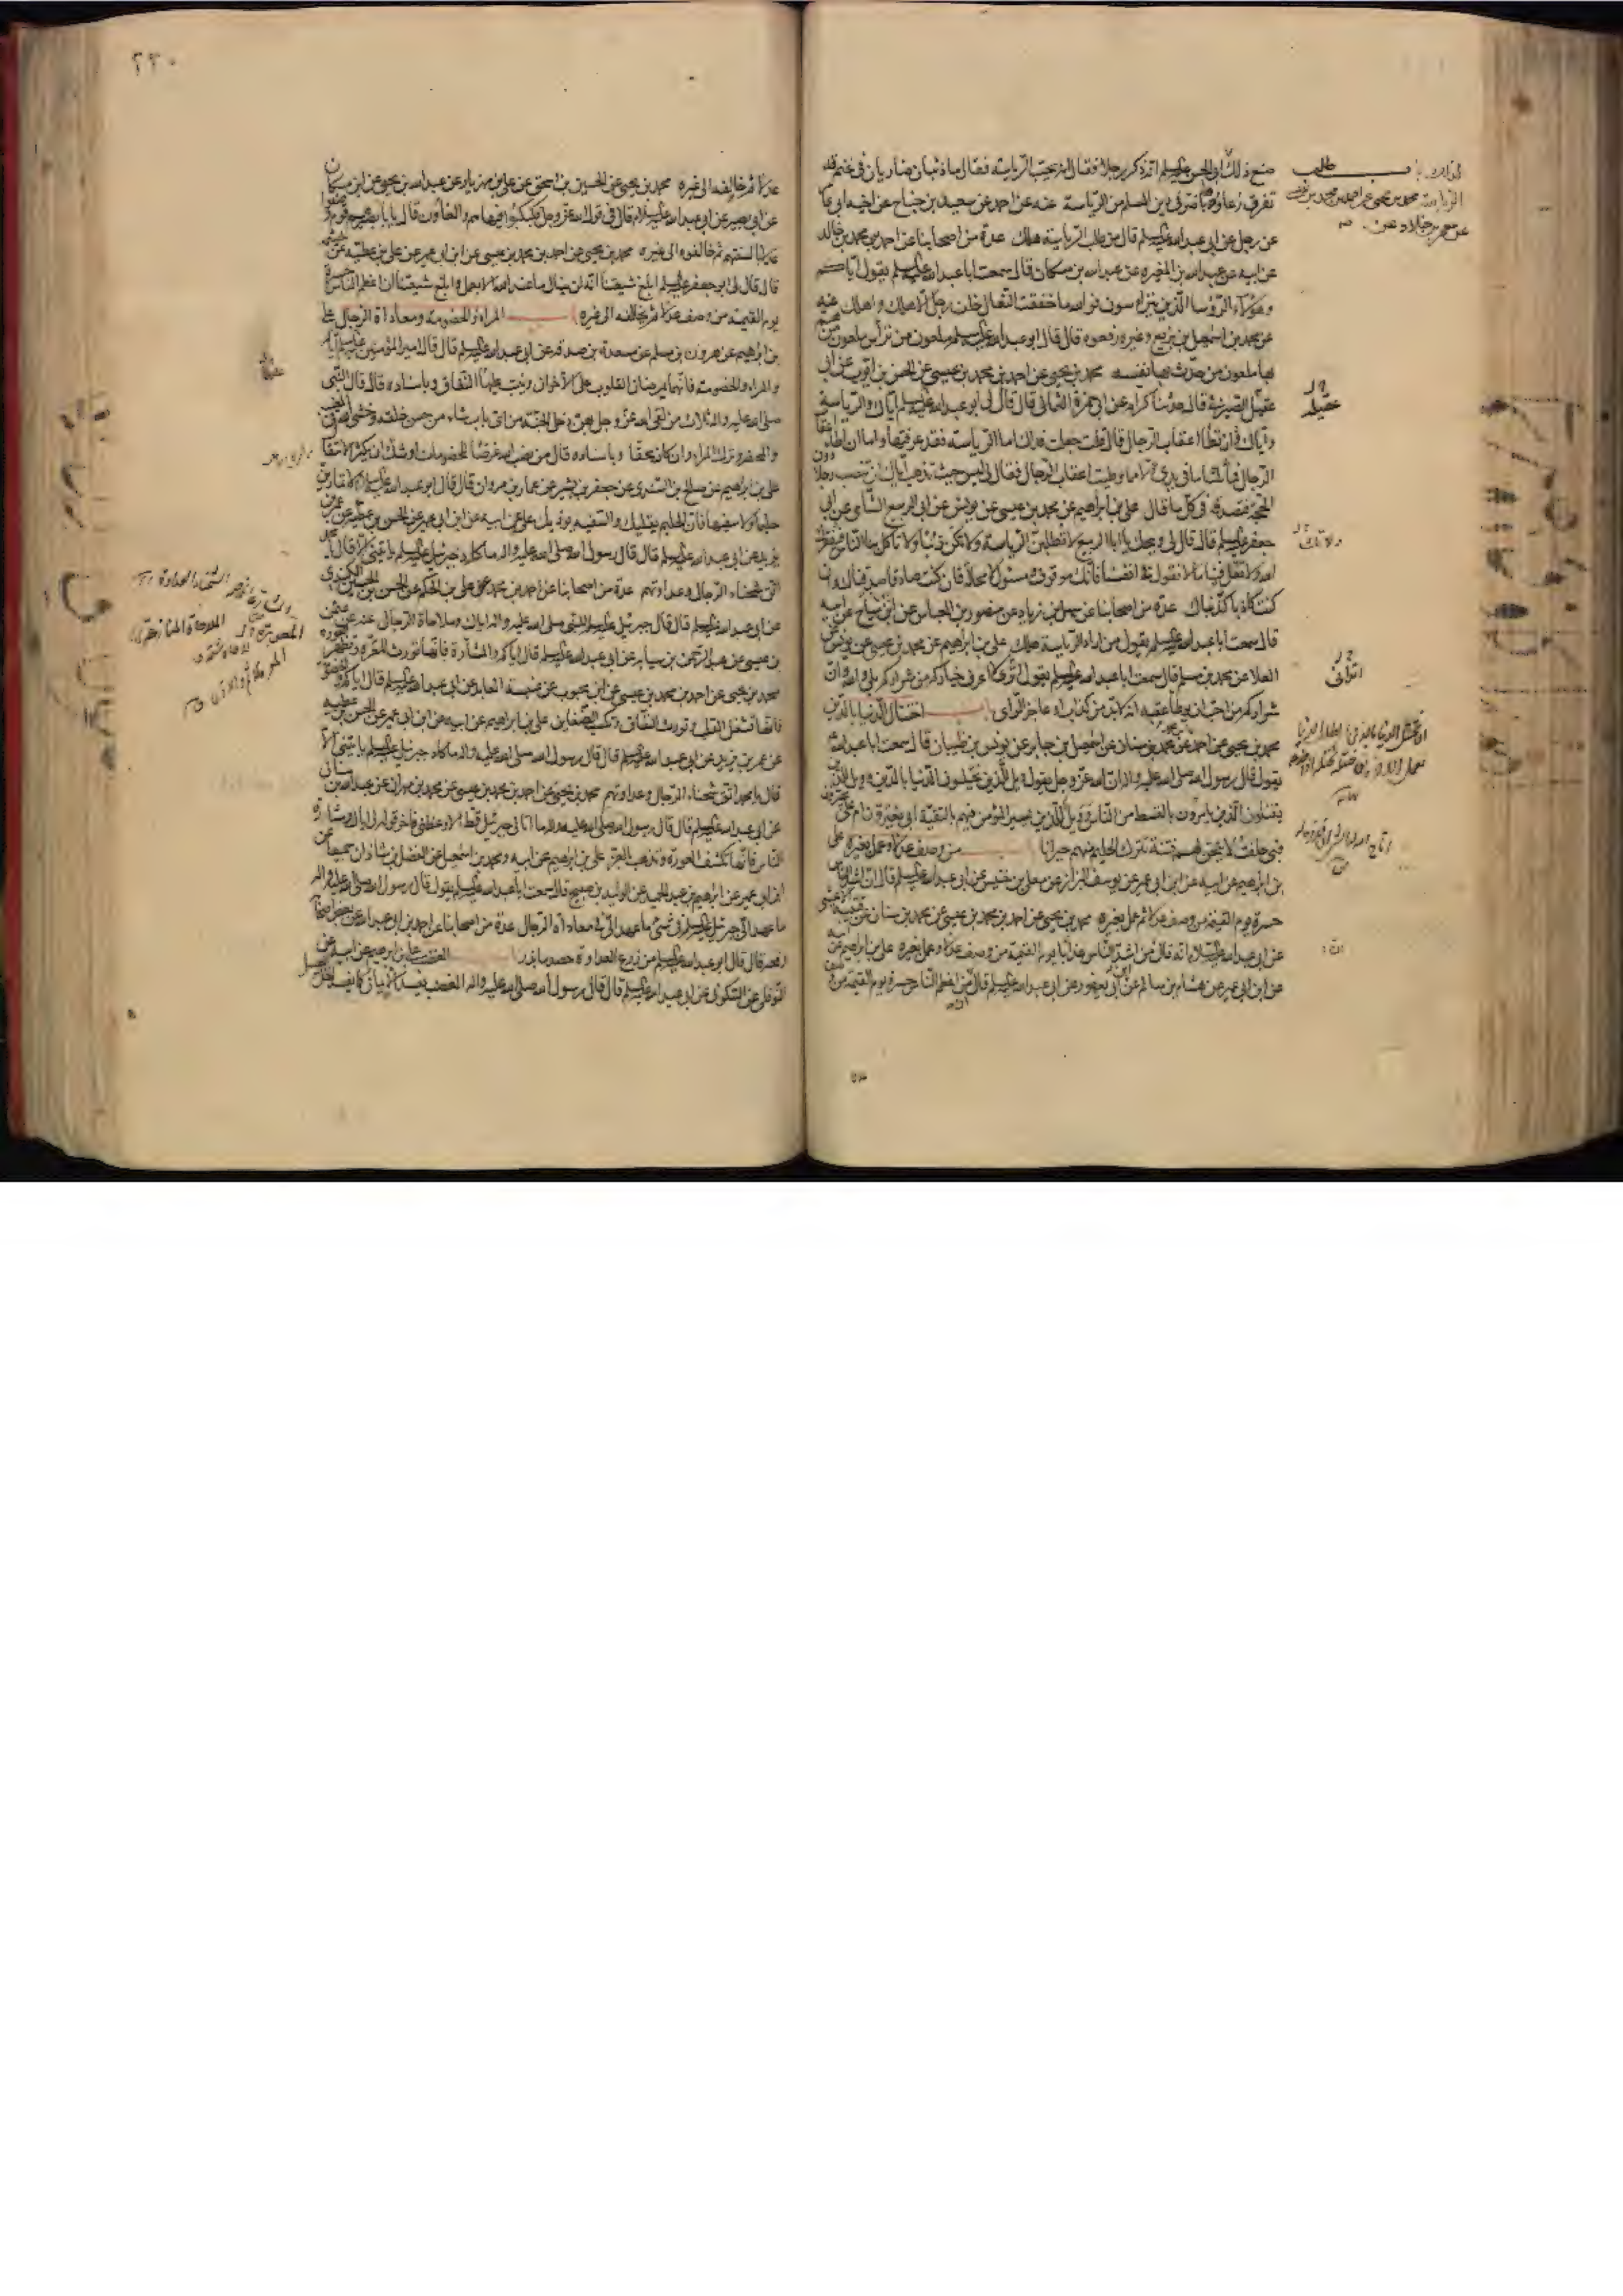 صنع ذلك ابى الحسن عليه السلم انه ذكر رجلا فقال انه يحب الرياسة فقال ما ذئبان ضاريان في غنم قد
تفرق رعاؤها باضر في دين المسلم من الرياسة عنه عن احمد عن سعيد بن جناح عن اخيه ابى عا
عن رجل عن ابى عبد الله عليه السلم قال من طلب الرياسة هلك عدة من اصحابنا عن احمد بن محمد بن خالد
عن ابيه عن عبد الله بن المغيرة عن عبد الله بن مسكان قال سمعت ابا عبد الله عليه السلم يقول اياكم
وهؤلاء الرؤسا الذين يتراسون فوالله ما خفقت النعال خلف رجل الا هلك واهلك عنه
عن محمد بن اسمعيل بن بزيع وغيره رفعوه قال قال ابو عبد الله عليه السلم ملعون من ترأس ملعون من هم
بها ملعون من حدث بها نفسه محمد بن يحيى عن احمد بن محمد بن عيسى عن الحسن بن ايوب عن ابى
عقيل الصيرفي قال حدثنا كرام عن ابى حمزة الثمالى قال قال لى ابو عبد الله عليه السلم اياك والرياسة
واياك ان تطأ اعقاب الرجال قال قلت جعلت فداك اما الرياسة فقد عرفتها واما ان اطأ اعقا
الرجال فما ثلثا ما في يدي الا مما وطئت اعقاب الرجال فقال لى ليس حيث تذهب اياك ان تنصب رجلا دون
الحجة فتصدقه في كل ما قال على بن ابراهيم عن محمد بن عيسى عن يونس عن ابى الربيع الشامى عن ابى
جعفر عليه السلم قال قال لى ويحك يا ابا الربيع لا تطلبن الرياسة ولا تكن ذئبا ولا تأكل بنا الناس فيفقرك
الله ولا تقل فينا ما لا نقول في انفسنا فانك موقوف ومسئول لا محالة فان كنت صادقا صدقناك وان
كنت كاذبا كذبناك عدة من اصحابنا عن سهل بن زياد عن منصور بن العباس عن ابن مياح عن ابيه
قال سمعت ابا عبد الله عليه السلم يقول من اراد الرياسة هلك على بن ابراهيم عن محمد بن عيسى عن يونس عن
العلا عن محمد بن مسلم قال سمعت ابا عبد الله عليه السلم يقول اترى لا اعرف خياركم من شراركم بلى والله وان
شراركم من احب ان يوطأ عقبه انه لا بد من كذاب او عاجز الرأى باب اختتال الدنيا بالدين
محمد بن يحيى عن احمد عن محمد بن سنان عن اسمعيل بن جابر عن يونس بن ظبيان قال سمعت ابا عبد الله
يقول قال رسول الله صلى الله عليه واله ان الله عز وجل يقول ويل للذين يختلون الدنيا بالدين وويل للذين
يقتلون الذين يامرون بالقسط من الناس وويل للذين يسير المؤمن فيهم بالتقية ابى يغترون ام على
فبى حلفت لا تيحن لهم فتنة تترك الحليم منهم حيرانا باب من وصف عدلا وعمل بغيره على
بن ابراهيم عن ابيه عن ابن ابى عمير عن يوسف البزاز عن معلى بن خنيس عن ابى عبد الله عليه السلم قال ان اشد الناس
حسرة يوم القيمة من وصف عدلا ثم عمل بغيره محمد بن يحيى عن احمد بن محمد بن عيسى عن محمد بن سنان عن قتيبة الاعشى
عن ابى عبد الله عليه السلام انه قال من اشد الناس عذابا يوم القيمة من وصف عدلا وعمل بغيره على بن ابراهيم عن ابيه
عن ابن ابى عمير عن هشام بن سالم عن ابن ابى يعفور عن ابى عبد الله عليه السلم قال من اعظم الناس حسرة يوم القيمة من وصف
طلب
الرياسة محمد بن يحيى عن احمد بن محمد بن عيسى
عن معمر بن خلاد عن
عقيلة
ولا تك
اترانى
٢٣٠
عدلا ثم خالفه الى غيره محمد بن يحيى عن الحسين بن اسحق عن على بن مهزيار عن عبد الله بن يحيى عن ابن مسكان
عن ابى بصير عن ابى عبد الله عليه السلام قال في قول الله عز وجل فكبكبوا فيها هم والغاوون قال يا با بصير هم قوم وصفوا
عدلا بالسنتهم ثم خالفوه الى غيره محمد بن يحيى عن احمد بن محمد بن عيسى عن ابن ابى عمير عن على بن عطية عن خيثمة
قال قال لى ابو جعفر عليه السلم ابلغ شيعتنا انه لن ينال ما عند الله الا بعمل وابلغ شيعتنا ان اعظم الناس حسرة
يوم القيمة من وصف عدلا ثم يخالفه الى غيره باب المراء والخصومة ومعاداة الرجال على
بن ابراهيم عن هرون بن مسلم عن مسعدة بن صدقة عن ابى عبد الله عليه السلم قال قال امير المؤمنين عليه السلم اياكم
والمراء والخصومة فانهما يمرضان القلوب على الاخوان وينبت عليهما النفاق وباسناده قال قال النبى
صلى الله عليه واله ثلاث من لقى الله عز وجل بهن دخل الجنة من اى باب شاء من حسن خلقه وخشى الله في المغيب
والمحضر وترك المراء وان كان محقا وباسناده قال من نصب الله غرضا للخصومات اوشك ان يكثر الانتقال
على بن ابراهيم عن صالح بن السندى عن جعفر بن بشير عن عمار بن مروان قال قال ابو عبد الله عليه السلم لا تمارين
حليما ولا سفيها فان الحليم يقليك والسفيه يؤذيك على عن ابيه عن ابن ابى عمير عن الحسن بن عطية عن عمر بن
يزيد عن ابى عبد الله عليه السلم قال قال رسول الله صلى الله عليه واله ما كاد جبرئيل عليه السلم يأتينى الا قال يا محمد
اتق شحناء الرجال وعداوتهم عدة من اصحابنا عن احمد بن محمد عن على بن الحكم عن الحسن بن الحسين الكندى
عن ابى عبد الله عليه السلم قال قال جبرئيل عليه السلم للنبى صلى الله عليه واله اياك وملاحاة الرجال عنه عن عثمن
بن عيسى عن عبد الرحمن بن سيابة عن ابى عبد الله عليه السلم قال اياكم والمشارة فانها تورث المعرة وتظهر العورة
محمد بن يحيى عن احمد بن محمد بن عيسى عن ابن محبوب عن عنبسة العابد عن ابى عبد الله عليه السلم قال اياكم والخصومة
فانها تشغل القلب وتورث النفاق وتكسب الضغاين على بن ابراهيم عن ابيه عن ابن ابى عمير عن الحسن بن عطية
عن عمر بن يزيد عن ابى عبد الله عليه السلم قال قال رسول الله صلى الله عليه واله ما كاد جبرئيل عليه السلم يأتينى الا
قال يا محمد اتق شحناء الرجال وعداوتهم محمد بن يحيى عن احمد بن محمد بن عيسى عن محمد بن مهران عن عبد الله بن سنان
عن ابى عبد الله عليه السلم قال قال رسول الله صلى الله عليه واله ما اتانى جبرئيل قط الا وعظنى فاخر قوله لى اياك ومشارة
الناس فانها تكشف العورة وتذهب بالعز على بن ابراهيم عن ابيه ومحمد بن اسمعيل عن الفضل بن شاذان جميعا عن
ابن ابى عمير عن ابراهيم بن عبد الحميد عن الوليد بن صبيح قال سمعت ابا عبد الله عليه السلم يقول قال رسول الله صلى الله عليه واله
ما عهد الى جبرئيل عليه السلم في شئ ما عهد الى في معاداة الرجال عدة من اصحابنا عن احمد بن ابى عبد الله عن بعض اصحابه
رفعه قال قال ابو عبد الله عليه السلم من زرع العداوة حصد ما بذر باب الغضب على بن ابراهيم عن ابيه عن
النوفلى عن السكونى عن ابى عبد الله عليه السلم قال قال رسول الله صلى الله عليه واله الغضب يفسد الايمان كما يفسد الخل العسل